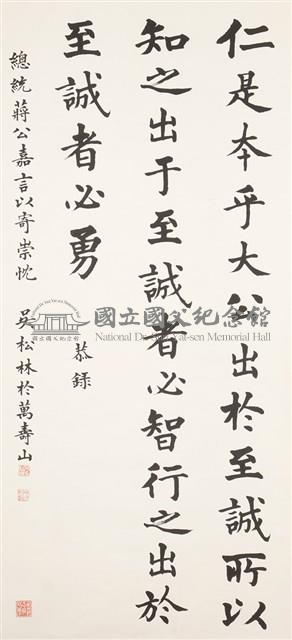 仁是本乎大公出於至誠所以
知之出于至誠者必智行之出於
至誠者必勇
恭録
總統蔣公嘉言以寄崇忱
吳松林於萬壽山
國立國父紀念館
National Dr. Sun Yat-sen Memorial Hall